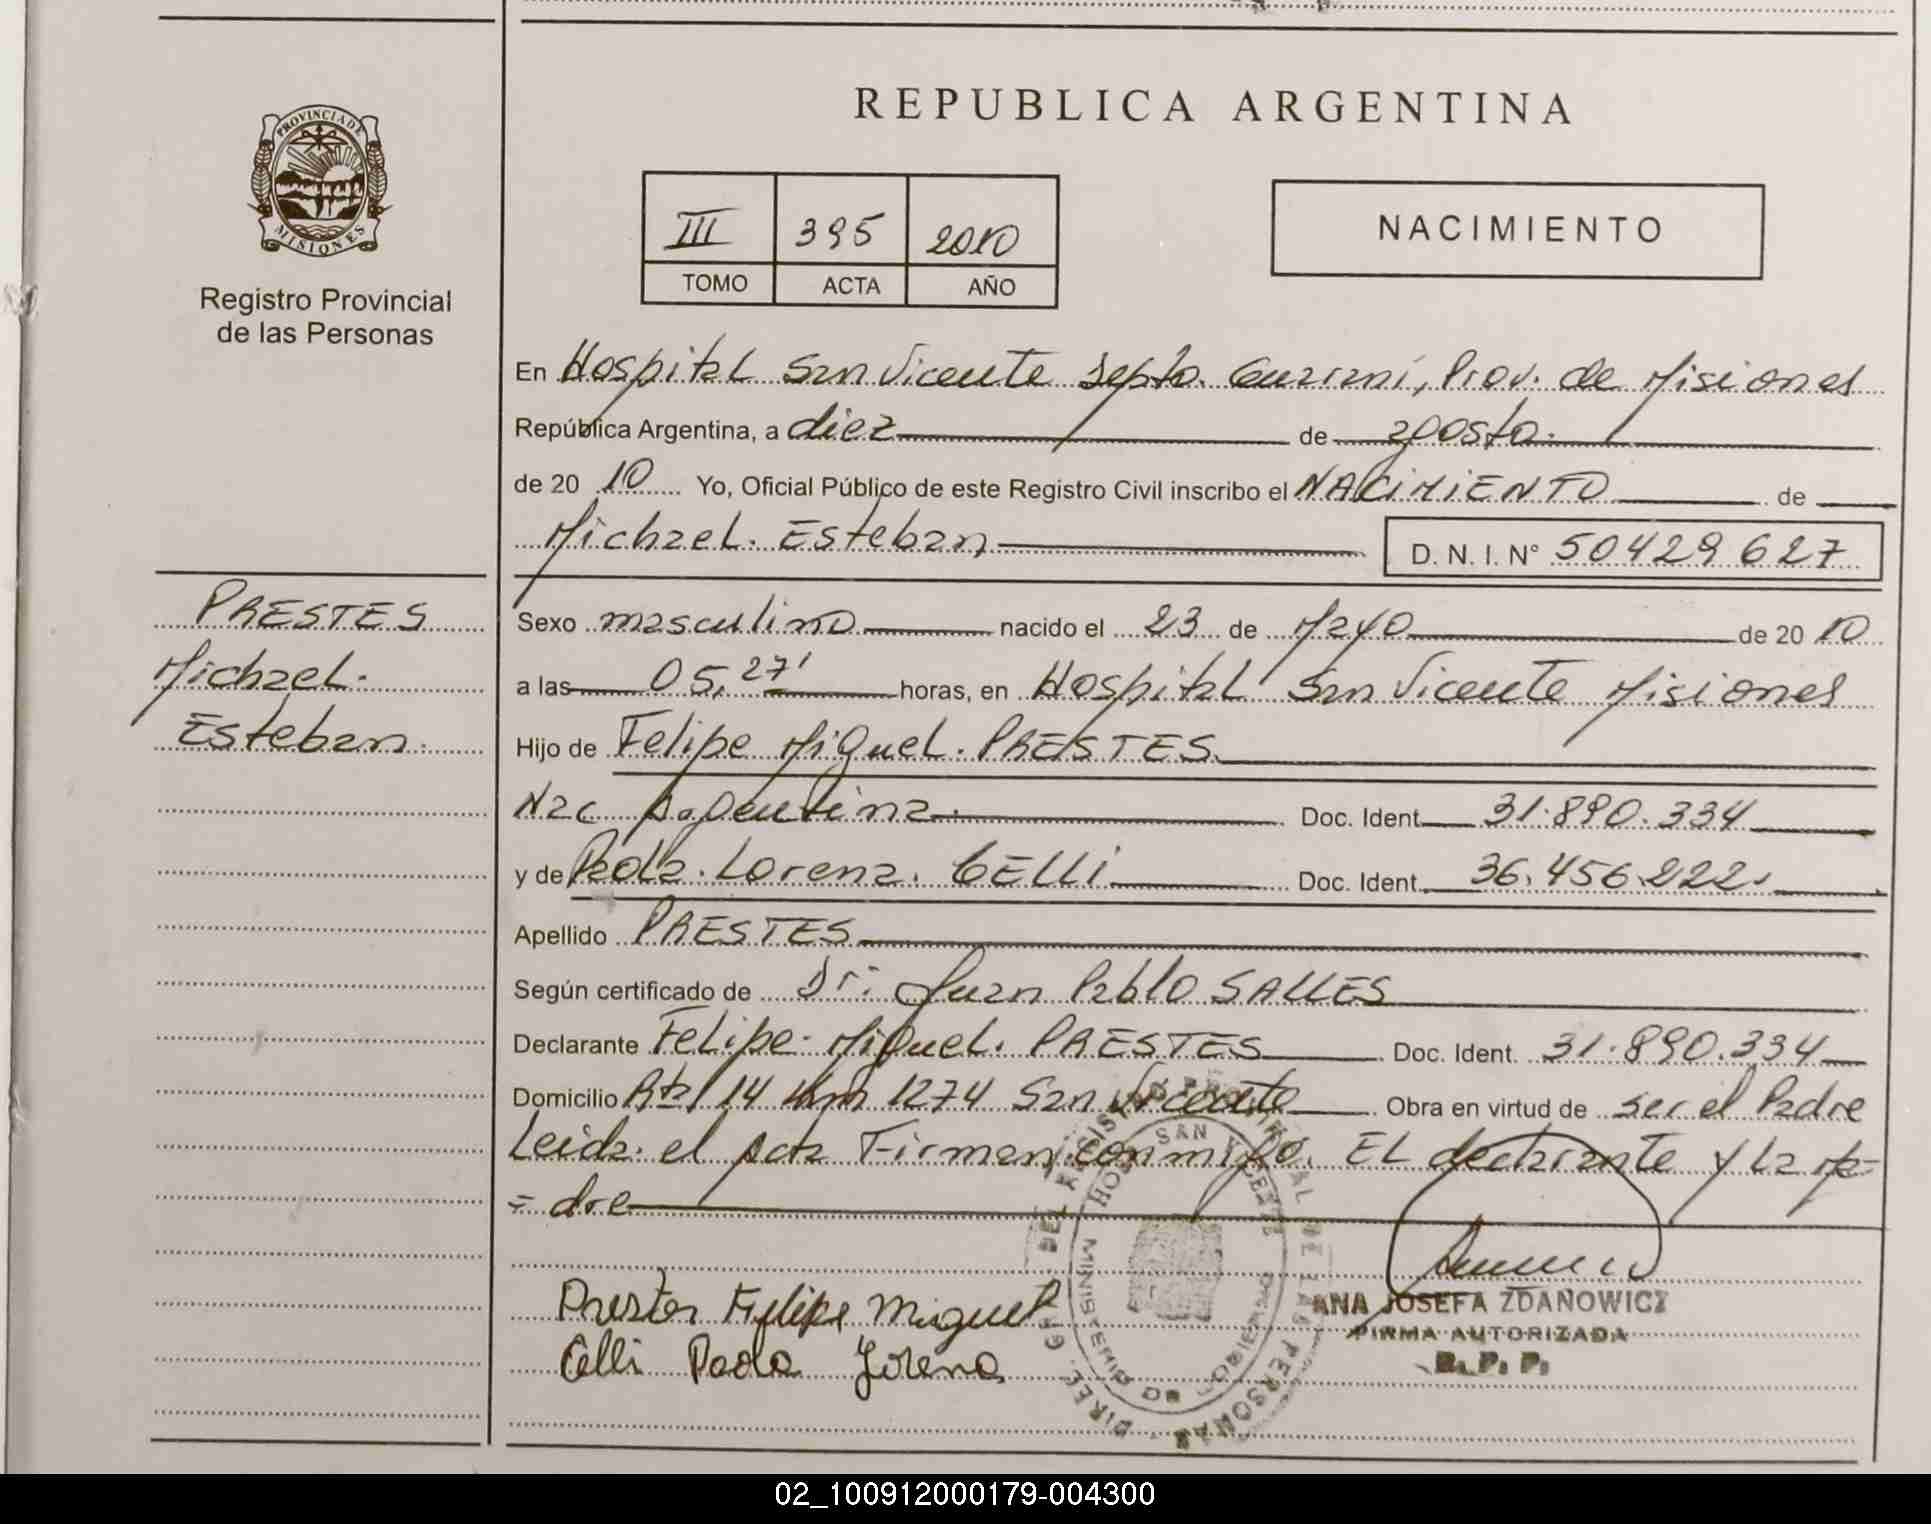 REPUBLICA ARGENTINA
PROVINCIA DE
MISIONES
Registro Provincial
de las Personas
III 395 2010
TOMO ACTA AÑO
NACIMIENTO
En Hospital San Vicente Depto. Guarani, Prov. de Misiones
República Argentina, a diez de agosto.
de 20 10 Yo, Oficial Público de este Registro Civil inscribo el NACIMIENTO de
Michael. Esteban D. N. I. N° 50429627
PRESTES
Michael.
Esteban.
Sexo masculino nacido el 23 de Mayo de 20 10
a las 05,27' horas, en Hospital San Vicente Misiones
Hijo de Felipe Miguel. PRESTES.
Nac Argentina. Doc. Ident. 31.890.334
y de Paola. Lorena. CELLI Doc. Ident. 36.456.222.
Apellido PRESTES
Según certificado de Dr: Juan Pablo SALLES
Declarante Felipe. Miguel. PRESTES Doc. Ident. 31.890.334
Domicilio Rta 14 Km 1274 San Vicente Obra en virtud de ser el Padre
Leida el acta Firman conmigo. EL declarante y La Ma=
= dre
Felipe Miguel
Celli Paola Lorena
HOSP. SAN VICENTE
ANA JOSEFA ZDANOWICZ
FIRMA AUTORIZADA
R. P. P.
02_100912000179-004300